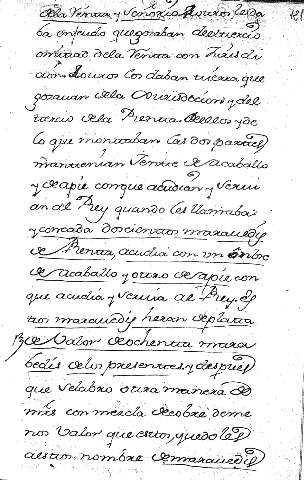 dela Renta y Señorio, y otros les da
ba en feudo que gozaban del tercio
o mitad dela Renta con Jurisdi
cion, y otros los daban tierra que
gozavan dela Jurisdiccion y del
tercio dela Renta dellos y de
lo que montaban las dos partes
mantenian Jente de acaballo
y de apie con que acudian y servi
an al Rey quando los llamaba
y con cada doscientos maravedis
de Renta acudia con un onbre
de acaballo y otro de apie con
que acudia y servia al Rey. Es
tos maravedis heran de plata
de Valor de ochenta mara
bedis delos presentes, y despues
que se labro otra manera de
mrs con mezcla de cobre de me
nos Valor que estos, quedo les
a estos nombre de maravedis